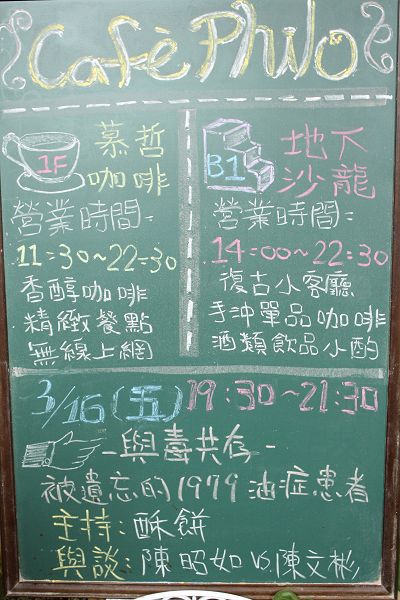 Cafè Philo
1F
慕哲
咖啡
營業時間=
11:30~22:30
香醇咖啡
精緻餐點
無線上網
B1
地下
沙龍
營業時間=
14:00~22:30
復古小客廳
手沖單品咖啡
酒類飲品小酌
3/16(五) 19:30~21:30
-與毒共存-
被遺忘的1979油症患者
主持:酥餅
與談:陳昭如 vs.陳文彬